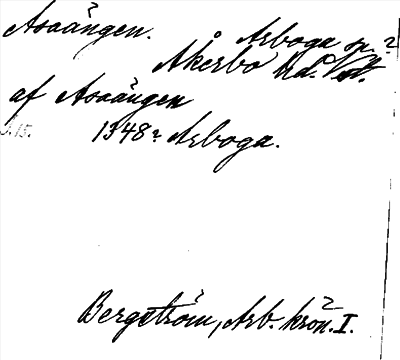 Asaängen.
Arboga sn.?
Åkerbo hd. Vstm.
af Asaängen
1348? Arboga.
Bergström, Arb. krön. I.